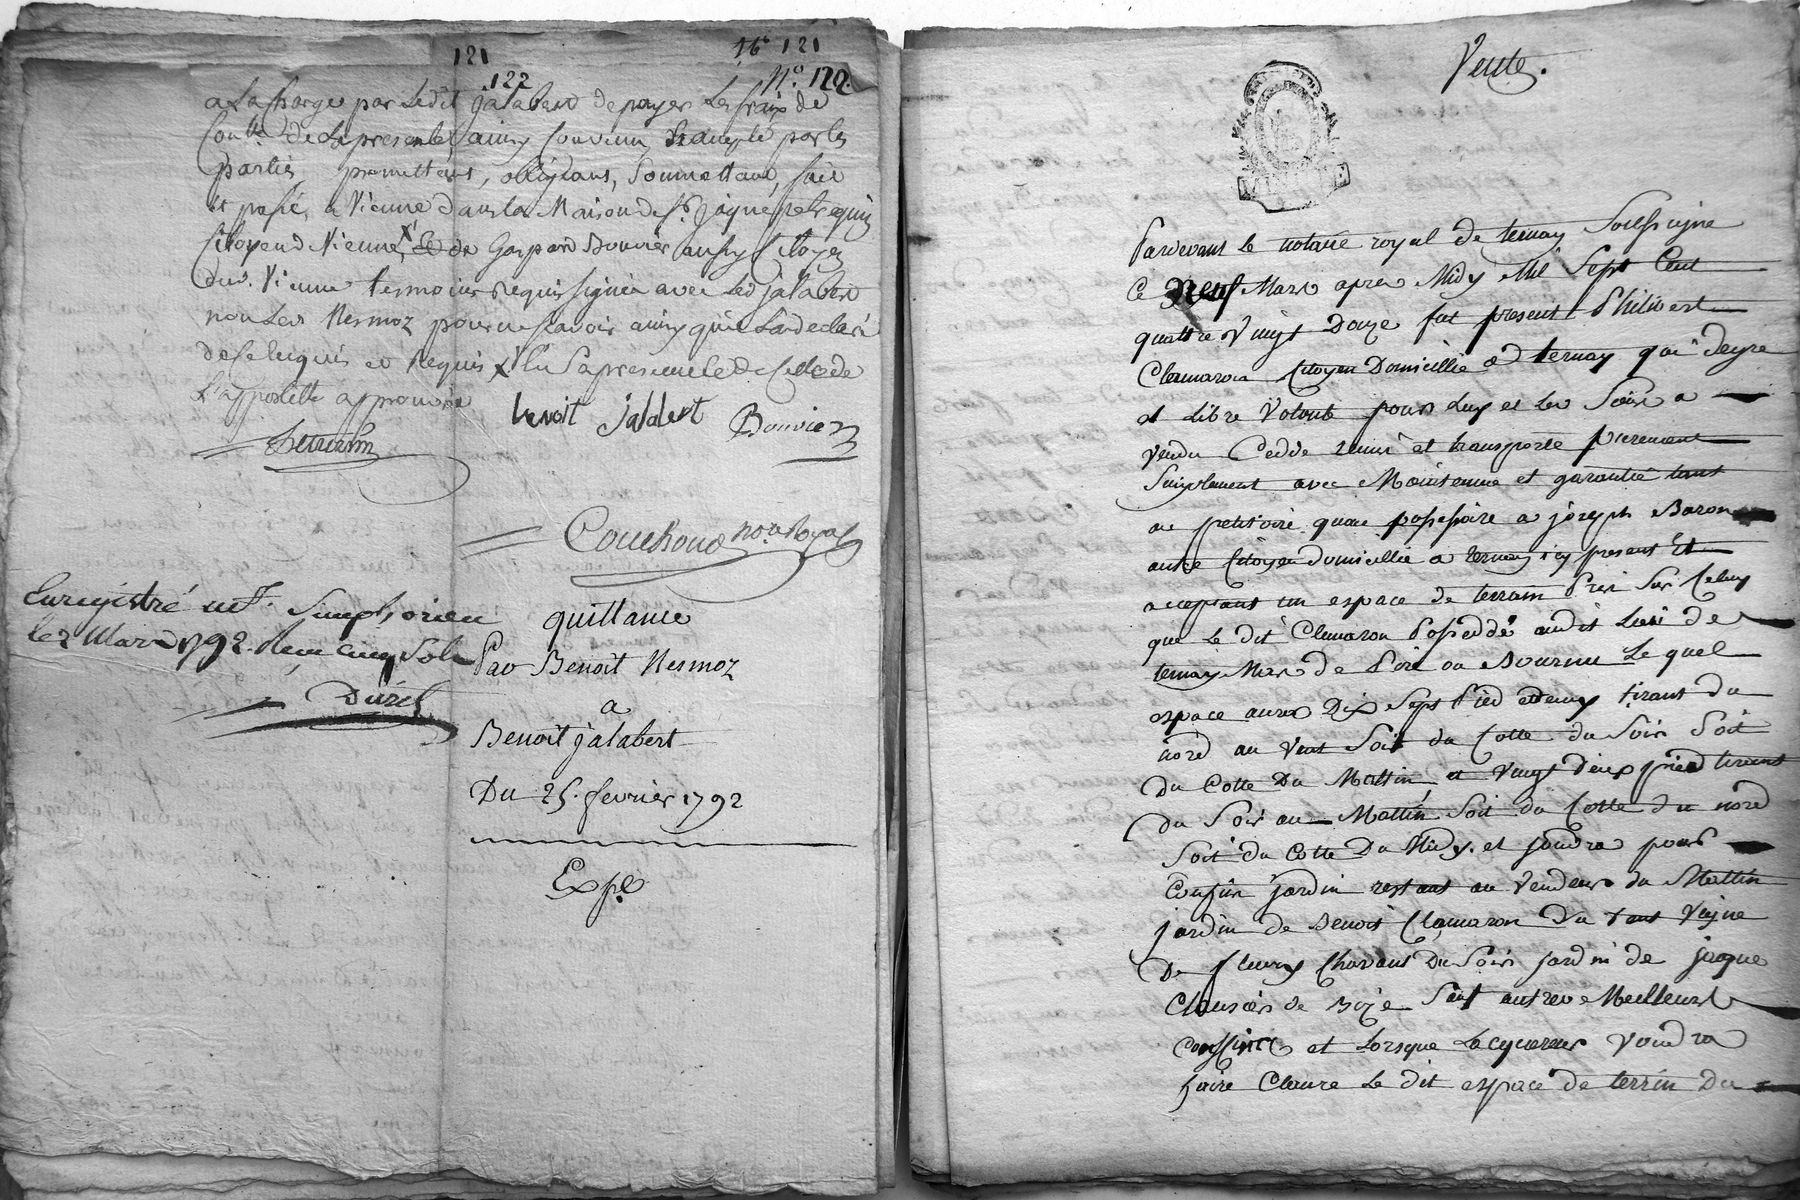 121
16 121
122
N.o 122.
a La charge par Ledit jalabert de payer Les frais de
Con.lle de La presente, ainsy Convenu & accepté par les
parties promettant, obligeant, Soumettant, fait
et passé, a Vienne dans la Maison de Sr. jaque petrequin
Citoyen d Vienne, & de Gaspard Bouvier aussy Citoyen
dud. Vienne temoins Requis Signés avec Led jalabert
non Led Nesmoz pour ne scavoir ainsy qu'il La declaré
de Ce Enquis et Requis
L'appostille approuvée
benoit jalabert Bouvier
Couchoud no.re Royal
Enregistré a St. Simphorien
le 2 Mars 1792. Reçu cinq Sols
Durel
quittance
Par Benoît Nesmoz
a
Benoît jalabert
Du 25. fevrier 1792
Expé
Vente.
Pardevant le notaire royal de ternay Soussigné
Ce neuf Mars apres Midy Mil Sept Cent
quattre Vingt Douze fut present Philibert
Clemaron Citoyen Domicillié a ternay qui de gre
et Libre Volonté pour Luy et Les Siens a
Vendu Ceddé remis et transporté purement
Simplement avec Maintenue et garantie tant
au petitoire que possessoire a joseph Baron
autre Citoyen domicillié a ternay icy present Et
acceptant un espace de terrain Pris Sur Celuy
que Le dit Clemaron Posseddé audit Lieu de
ternay Mas de Poie ou Bournu Lequel
espace aura Dix Sept Pied et demy tirant du
nord au Vent Soit du Cotte du Soir Soit
du Cotte Du Mattin, et Vingt deux pied tirant
du Soir au Mattin Soit du Cotte du nord
Soit du Cotte Du Midy. et joudra pour
Confin jardin restant au Vendeur du Mattin
jardin de Benoit Clamaron Du Vent Vigne
De fleury Chavant Du Soir jardin de jaque
Clausier de Bize Sauf autres Meilleurs
Confins et Lorsque Lacquereur Voudra
faire Claure Le dit espace de terrin Du